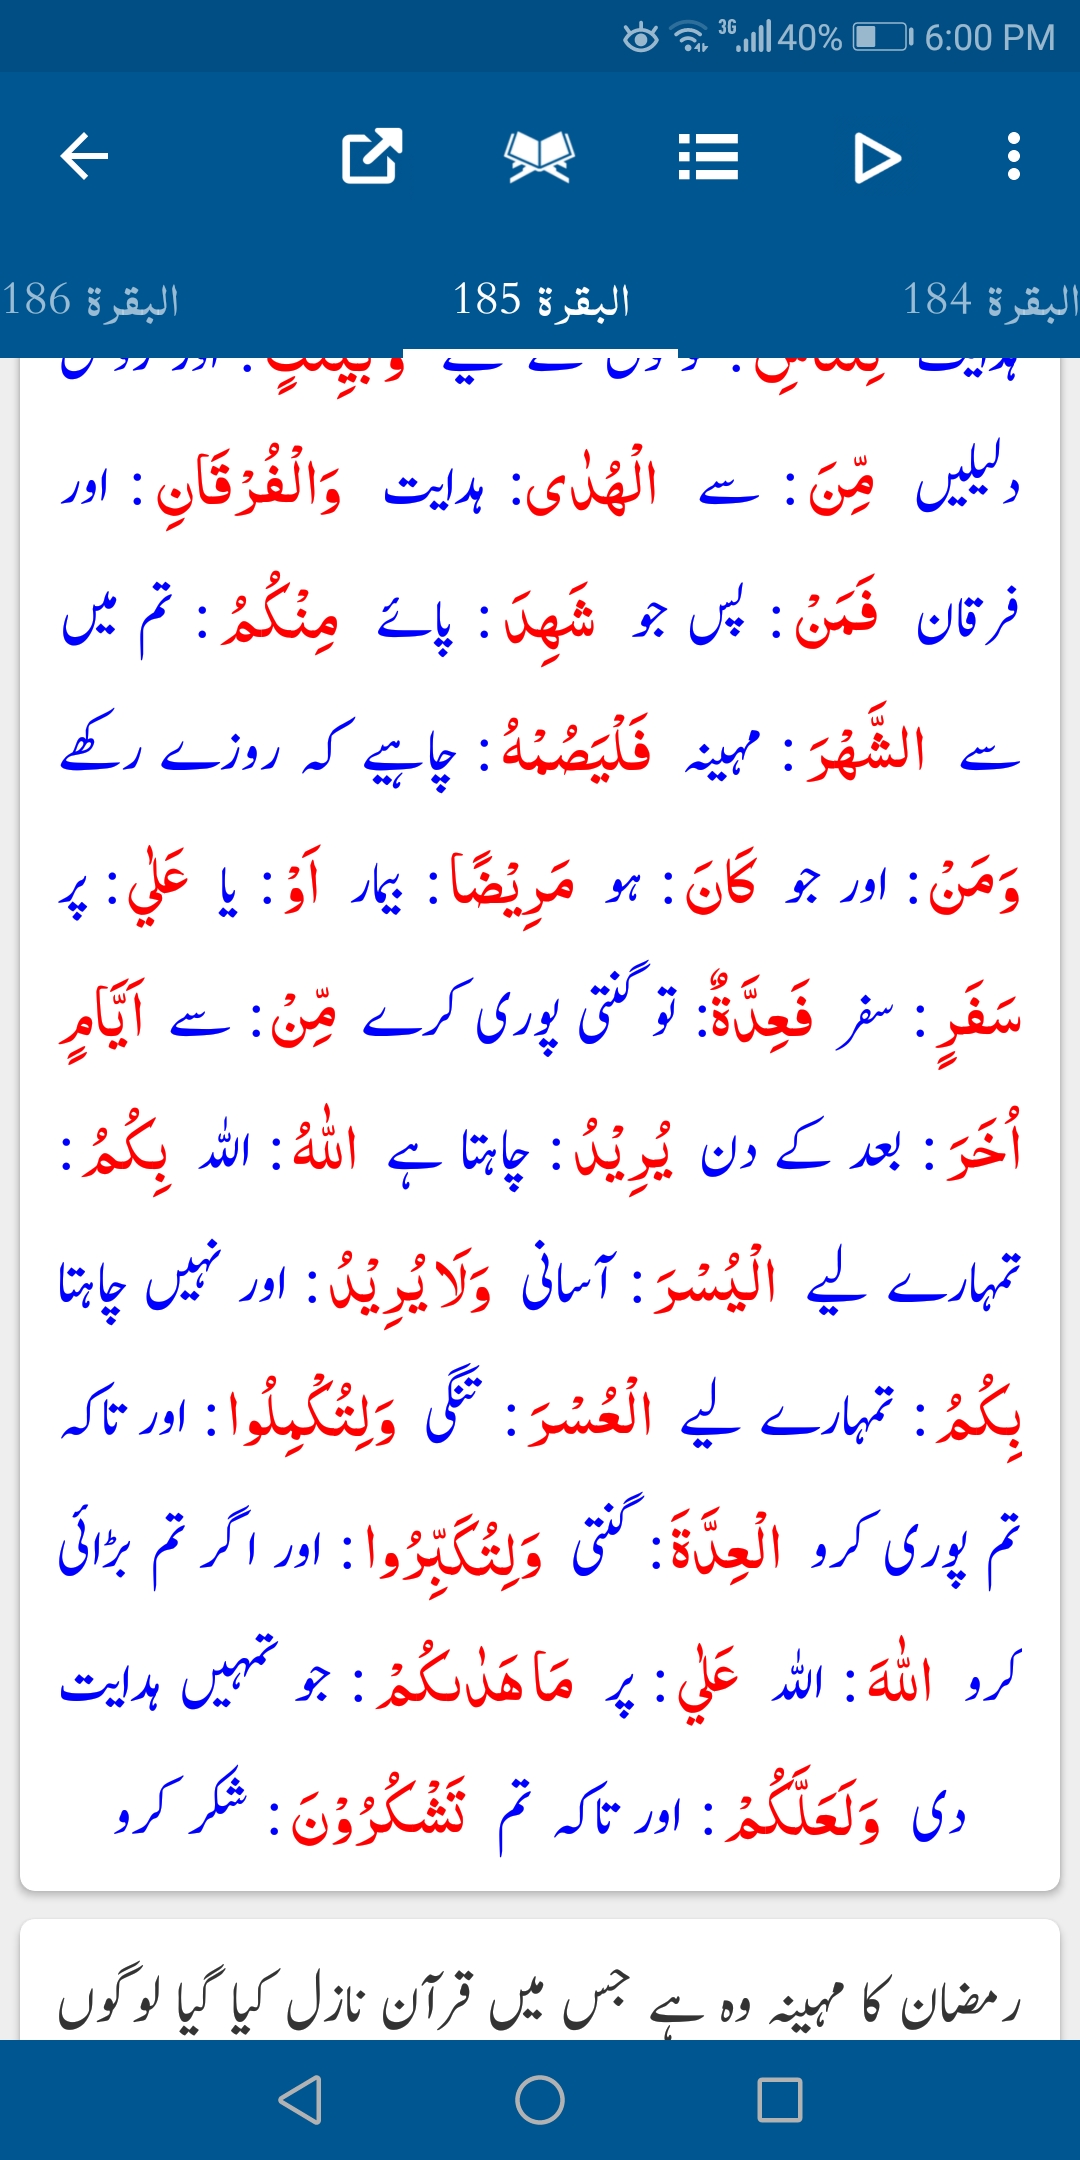 3G 40% 6:00 PM
البقرة 184 البقرة 185 البقرة 186
ہدایت لِّلنَّاسِ : لوگوں کے لیے وَبَيِّنٰتٍ : اور روشن
دلیلیں مِّنَ : سے الْهُدٰى : ہدایت وَالْفُرْقَانِ : اور
فرقان فَمَنْ : پس جو شَهِدَ : پائے مِنْكُمُ : تم میں
سے الشَّهْرَ : مہینہ فَلْيَصُمْهُ : چاہیے کہ روزے رکھے
وَمَنْ : اور جو كَانَ : ہو مَرِيْضًا : بیمار اَوْ : یا عَلٰي : پر
سَفَرٍ : سفر فَعِدَّةٌ : تو گنتی پوری کرے مِّنْ : سے اَيَّامٍ
اُخَرَ : بعد کے دن يُرِيْدُ : چاہتا ہے اللّٰهُ : اللہ بِكُمُ :
تمہارے لیے الْيُسْرَ : آسانی وَلَا يُرِيْدُ : اور نہیں چاہتا
بِكُمُ : تمہارے لیے الْعُسْرَ : تنگی وَلِتُكْمِلُوا : اور تاکہ
تم پوری کرو الْعِدَّةَ : گنتی وَلِتُكَبِّرُوا : اور اگر تم بڑائی
کرو اللّٰهَ : اللہ عَلٰي : پر مَا هَدٰىكُمْ : جو تمہیں ہدایت
دی وَلَعَلَّكُمْ : اور تاکہ تم تَشْكُرُوْنَ : شکر کرو
رمضان کا مہینہ وہ ہے جس میں قرآن نازل کیا گیا لوگوں